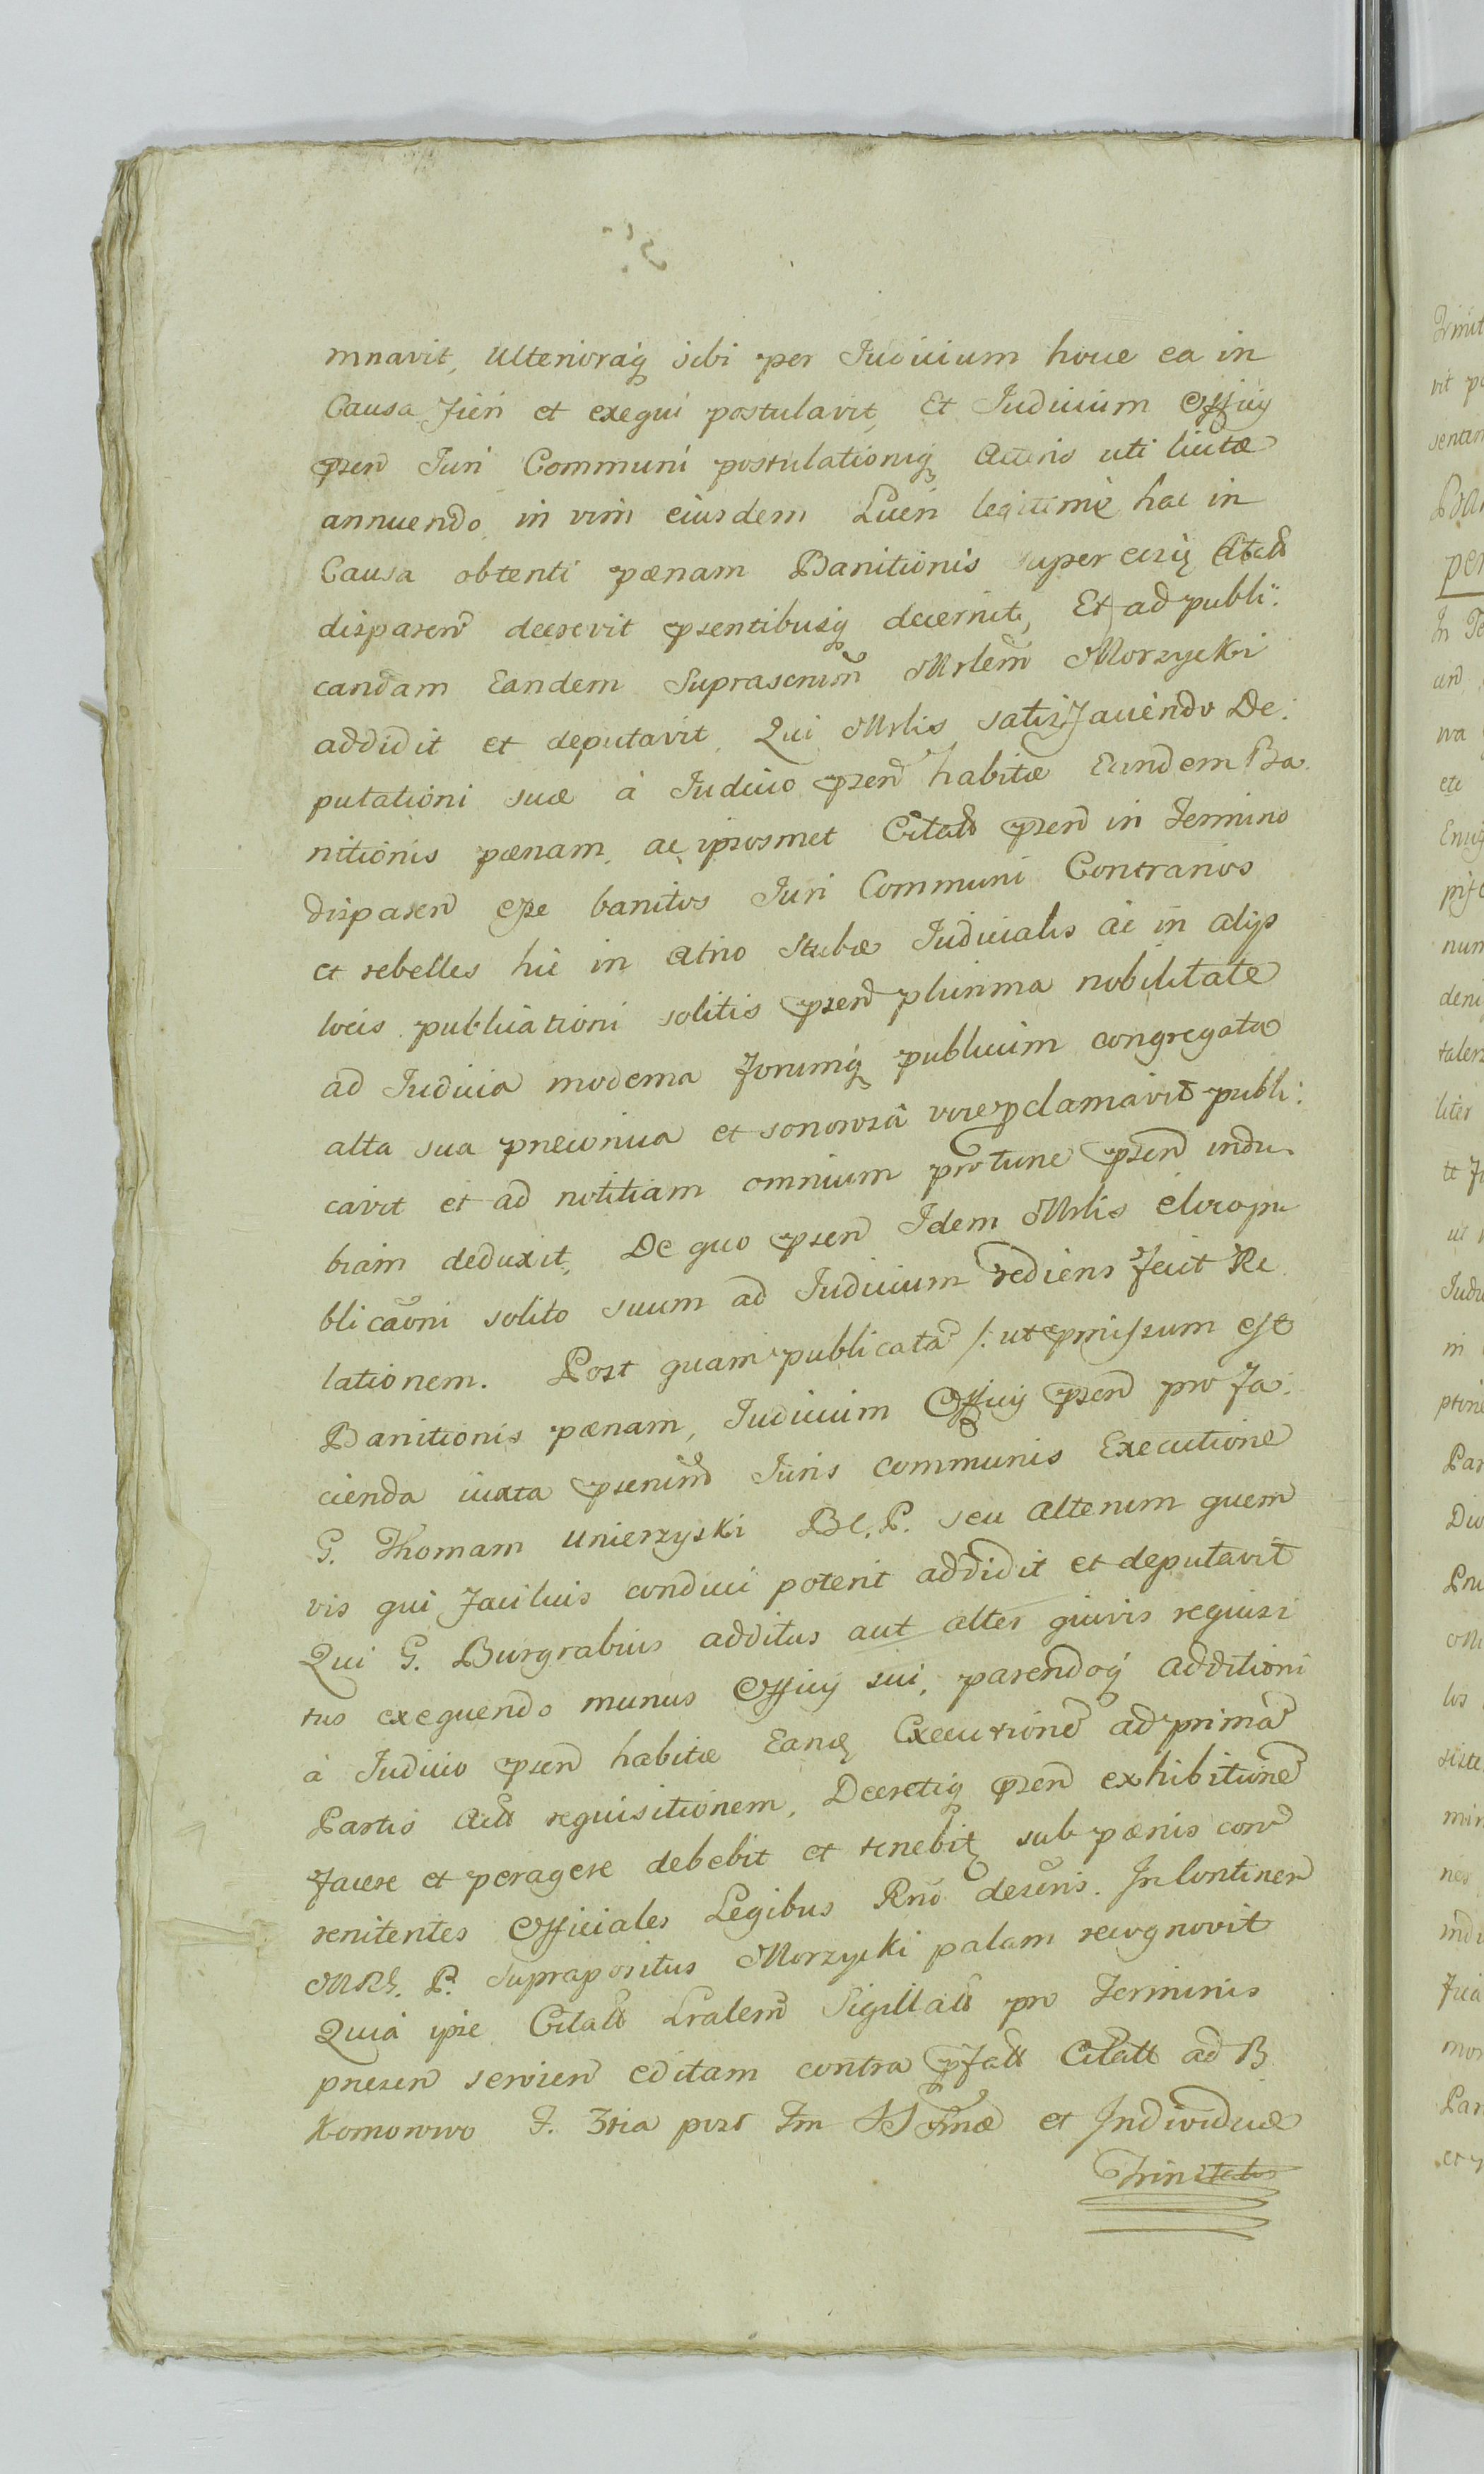 mnavit, Ulterioraq sibi per Judicium hocce ea in
Causa Fieri et exequi postulavit, Et Judicium Officij
psen Juri Communi postulationiq Actoris uti licitæ
annuendo, in vim eiusdem Lucri legitime hac in
Causa obtenti pænam Banitionis super eisq Citatt
disparen decrevit psentibusq decernit, Et ad publi:
candam Eandem Suprascrium Mrlem Morzycki
addidit et deputavit, Qui Mrlis satisfaciendo De:
putationi suæ à Judicio psen habitæ Eandem Ba
nitionis pænam, ac ipsosmet Citatt psen in Termino
disparen esse banitos Juri Communi Contrarios
et rebelles hic in Atrio Stubæ Judicialis ac in alijs
locis publicationi solitis psen plurima nobilitate
ad Judicia moderna forumq publicum congregata
alta sua præconica et sonorosâ voce pclamavit publi:
cavit et ad notitiam omnium pro tunc psen indu
biam deduxit, De quo psen Idem Mrlis e loco pu
blicaoni solito suum ad Judicium rediens fecit Re
lationem. Post quam publicata /: ut pmissum est
Banitionis pænam, Judicium Officij psen pro fa:
cienda iuxta psenim Juris communis Executione
G. Thomam Unierzyski B.C.P. seu alterum quem
vis qui facilius conduci poterit addidit et deputavit
Qui G. Burgrabius additus aut alter quivis requisi
tus exequendo munus Officij sui, parendoq additioni
à Judicio psen habitæ Eanq Executione ad prima
Partis Actt requisitionem, Decretiq psen exhibitione
facere et peragere debebit et tenebit sub pænis con
renitentes Officiales Legibus Rno descris. In Continen
MRG. P. Suprapositus Morzycki palam recognovit
Quia ipse Citatt Lralem Sigillatt pro Terminis
presen servien editam contra pfatt Citatt ad B.
Komorowo F. 3tia post Fm SSSmæ et Individuæ
Trinitatis